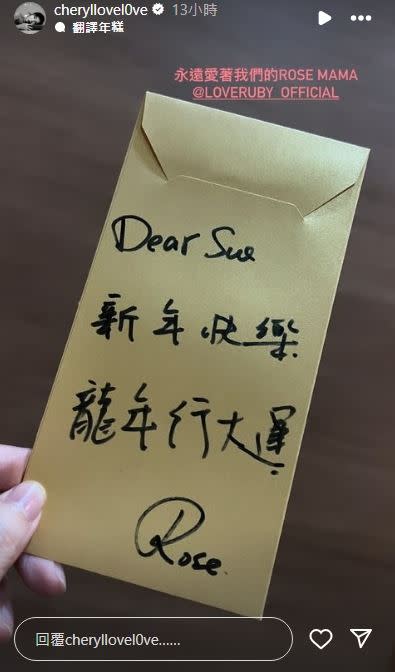 cheryllovel0ve 13小時
翻譯年糕
永遠愛著我們的ROSE MAMA
@LOVERUBY_OFFICIAL
Dear Sue
新年快樂
龍年行大運!
Rose.
回覆cheryllovel0ve......